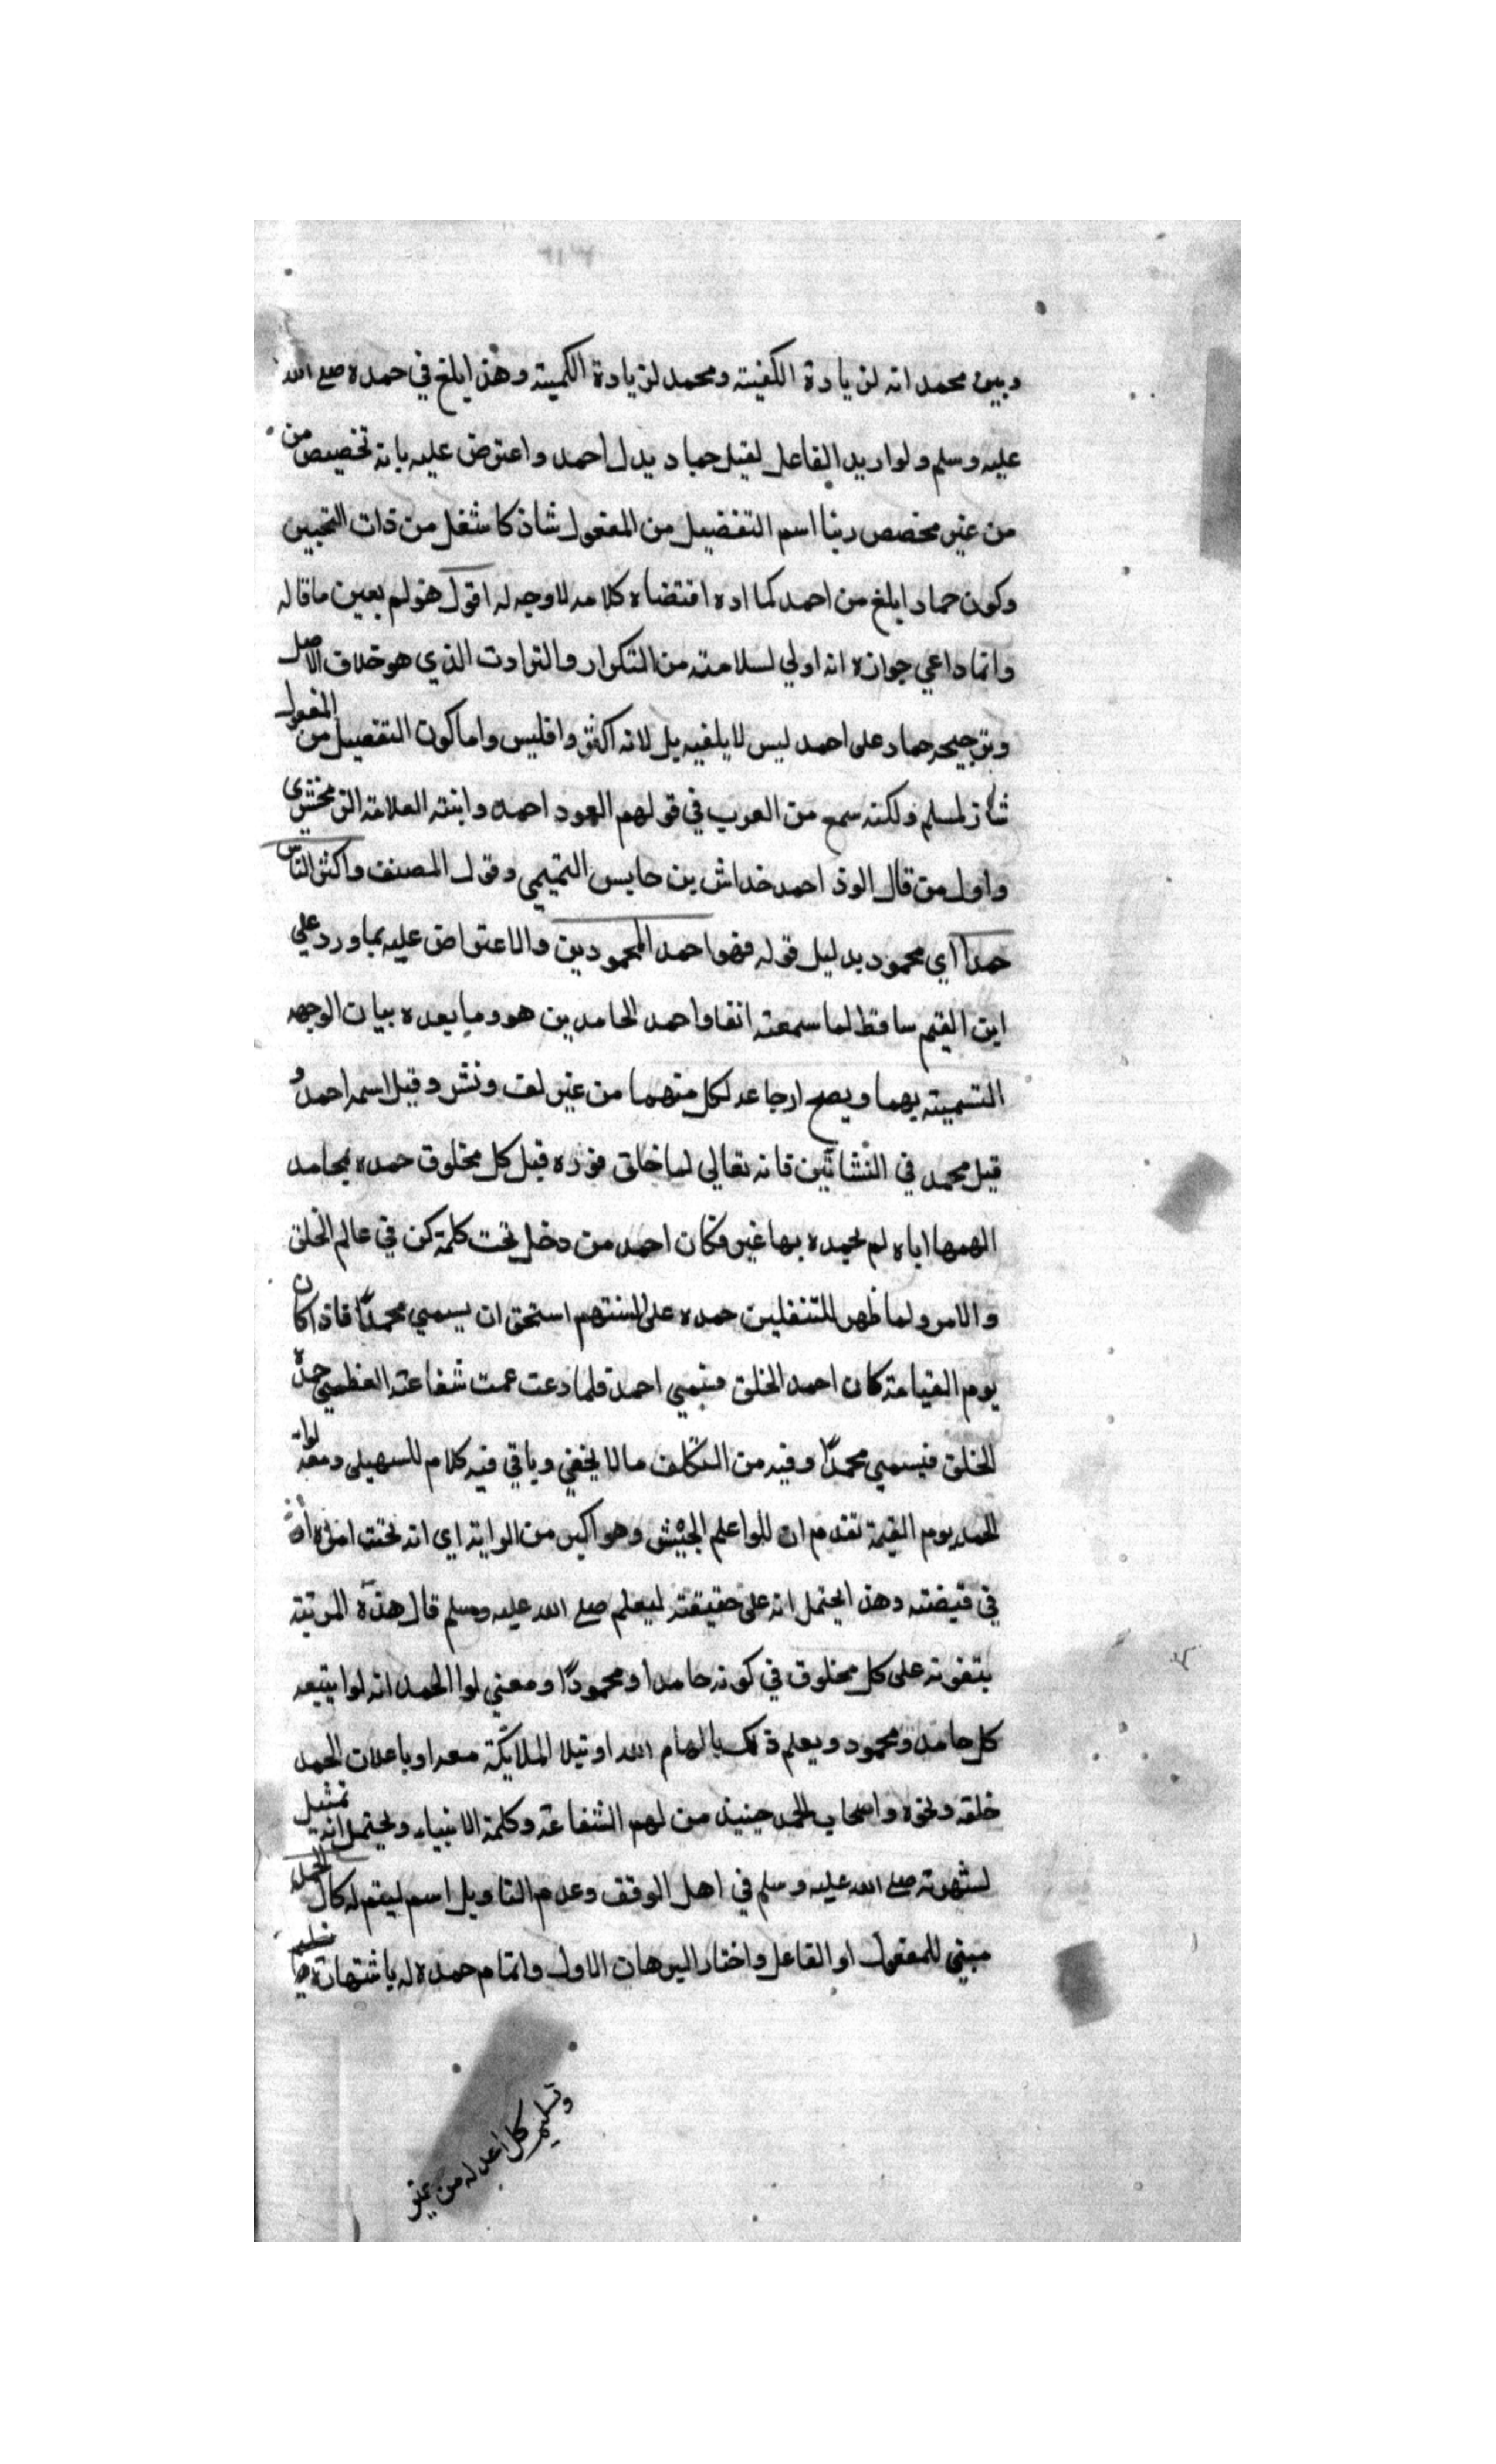 وبين محمد انه لزيادة الكفيته ومحمد لزيادة الكميته وهذا ابلغ في حمده صلى الله
عليه وسلم ولو اريد الفاعل لقيل حماد بدل احمد واعترض عليه بانه تخصيص من
من غير مخصص وبنا اسم التفضيل من المفعول شاذ كاشغل من ذات النحيين
وكون حماد ابلغ من احمد كما اده اقتضاه كلامه لا وجه له اقول هو لم يعين ما قاله
وانما داعي جوازه انه اولي لسلامته من التكرار والترادف الذي هو خلاف الاصل
وترجيحه حماد على احمد ليس لابلغيه بل لانه اكثر واقليس واما كون التفضيل من المفعول
شاذ لمسلم ولكنه سمع من العرب في قولهم العود احمد واثبته العلامة الزمخشري
واول من قال الوذ احمد خداش بن حابس التميمي وقول المصنف واكثر الناس
حمدا اي محمود بدليل قوله فهو احمد المحمودين والاعتراض عليه بما ورد على
ابن القيم ساقط لما سمعته انفا واحمد الحامدين هو وما بعده بيان لوجه
التسميته بهما ويصح ارجاعه لكل منهما من غير لف ونشر وقيل اسمه احمد و
قبل محمد في النشاتين فانه تعالي لما خلق نوره قبل كل مخلوق حمده بمحامد
الهمها اياه لم يحمده بها غير فكان احمد من دخل تحت كلمة كن في عالم الخلق
والامر ولما ظهر للثقلين حمده على السنتهم استحق ان يسمي محمدًا فاذا كان
يوم القيامة كان احمد الخلق فيسمي احمد فلما دعت عمت شفاعته العظمي حمده
الخلق فيسمي محمدًا وفيه من التكلف ما لا يخفي وياتي فيه كلام للسهيلي ومعه لواء
الحمد يوم القيمة تقدم ان للوا علم الجيش وهو اكبر من الراية اي انه تحت امره او
في قبضته وهذا يحتمل انه على حقيقته ليعلم صلى الله عليه وسلم قال هذه المرتبة
بتفوته على كل مخلوق في كونه حامدا ومحمودًا ومعني لوا الحمد انه لوا يتبعه
كل حامد ومحمود ويعلم ذلك بالهام الله او بنيلا الملايكة معه او باعلان الحمد
خلقه ونحوه واصحاب الحمد حينيذ من لهم الشفاعة وكلمة الانبياء ويحتمل انه تمثيل
لشهرته صلى الله عليه وسلم في اهل الموقف وعدم التاويل اسم ليتم له كمال الحمد
مبني للمفعول او الفاعل واختار البرهان الاول واتمام حمده له باشتهاره
وتسليم كل احد له من غير